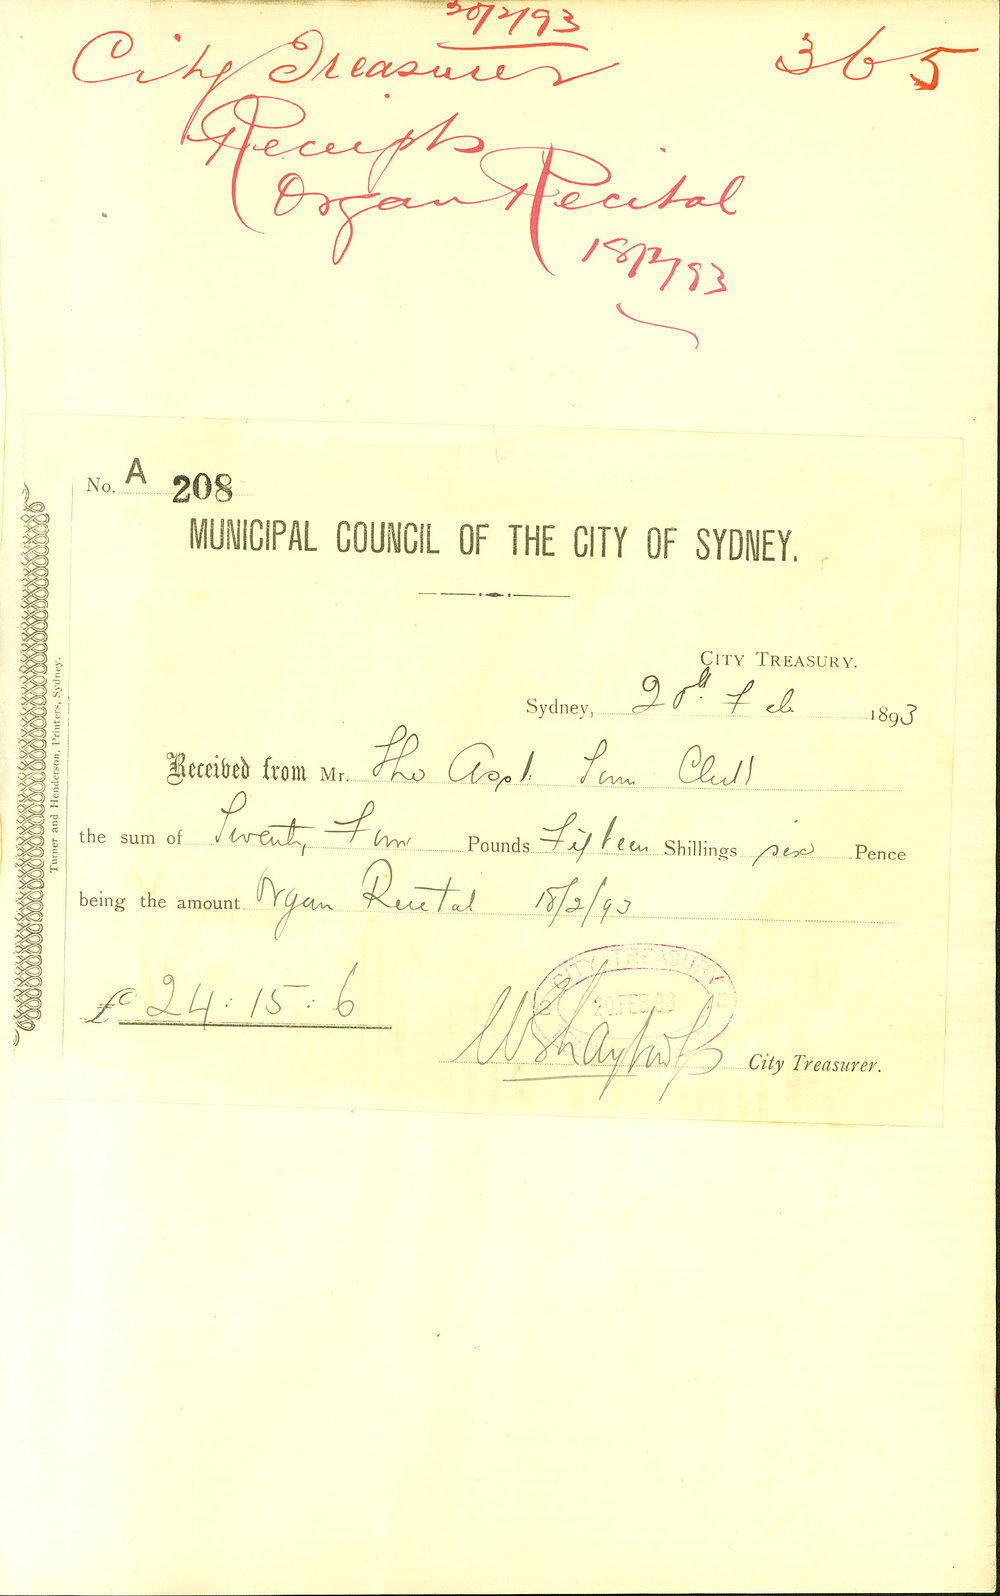 20/2/93
City Treasurer 365
Receipts
Organ Recital
18/2/93
No. A 208
MUNICIPAL COUNCIL OF THE CITY OF SYDNEY.
CITY TREASURY.
Sydney, 20th Feb 1893
Received from Mr. The Asst. Town Clerk
the sum of Twenty Four Pounds Fifteen Shillings six Pence
being the amount Organ Recital 18/2/93
£ 24:15:6
CITY TREASURY
20.FEB.93
City Treasurer.
Turner and Henderson, Printers, Sydney.